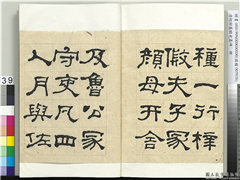 種一行梓
假夫子冢
顏母开舍
及魯公冢
守吏凡四
人月與佐
39